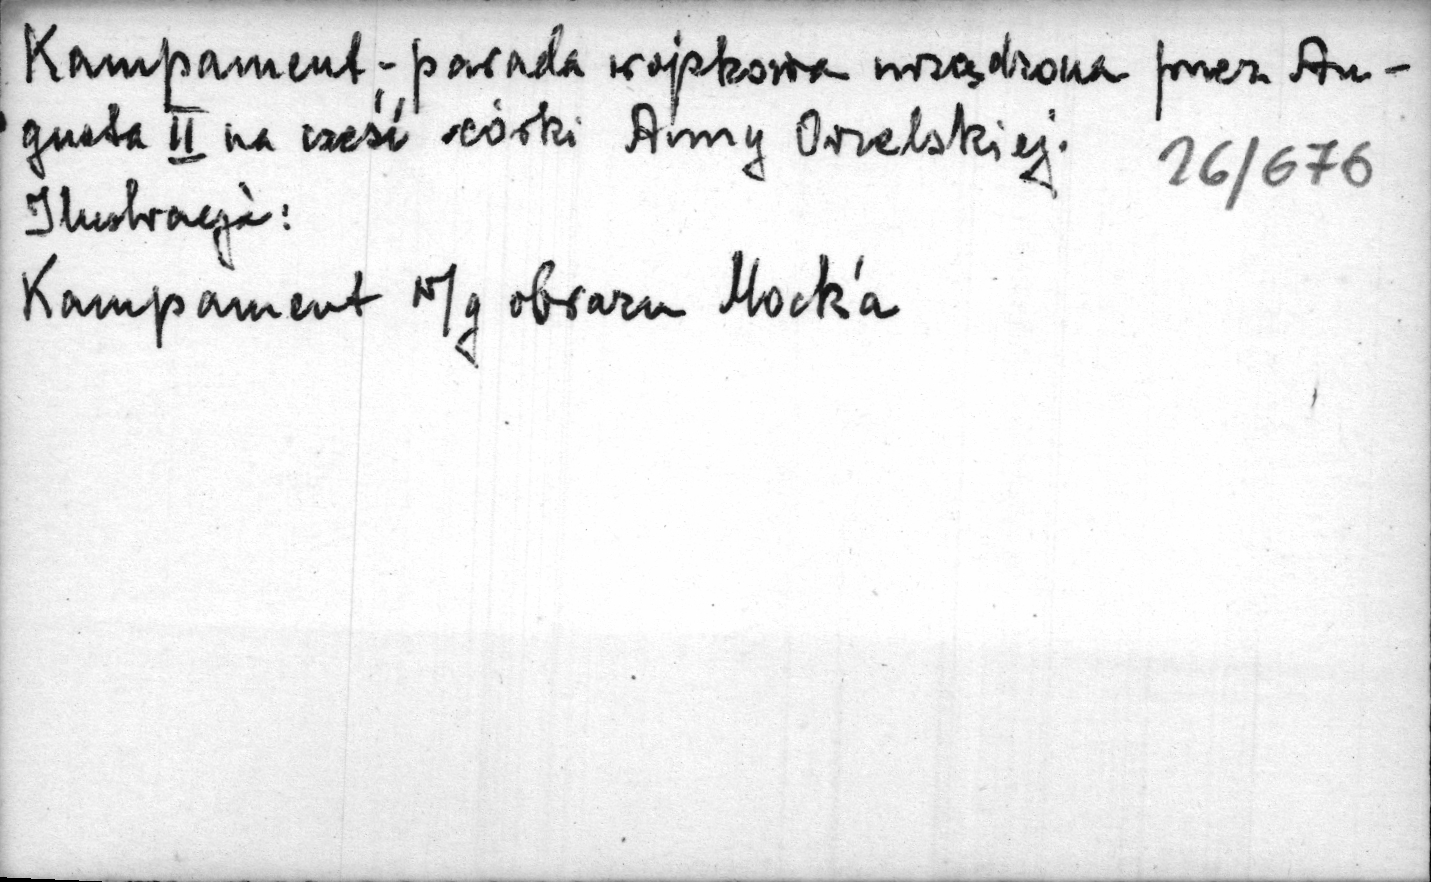 Kampament,- parada wojskowa urządzona przez Au-
gusta II na cześć córki Anny Orzelskiej. 26/676
Ilustracja:
Kampament w/g obrazu Mock'a